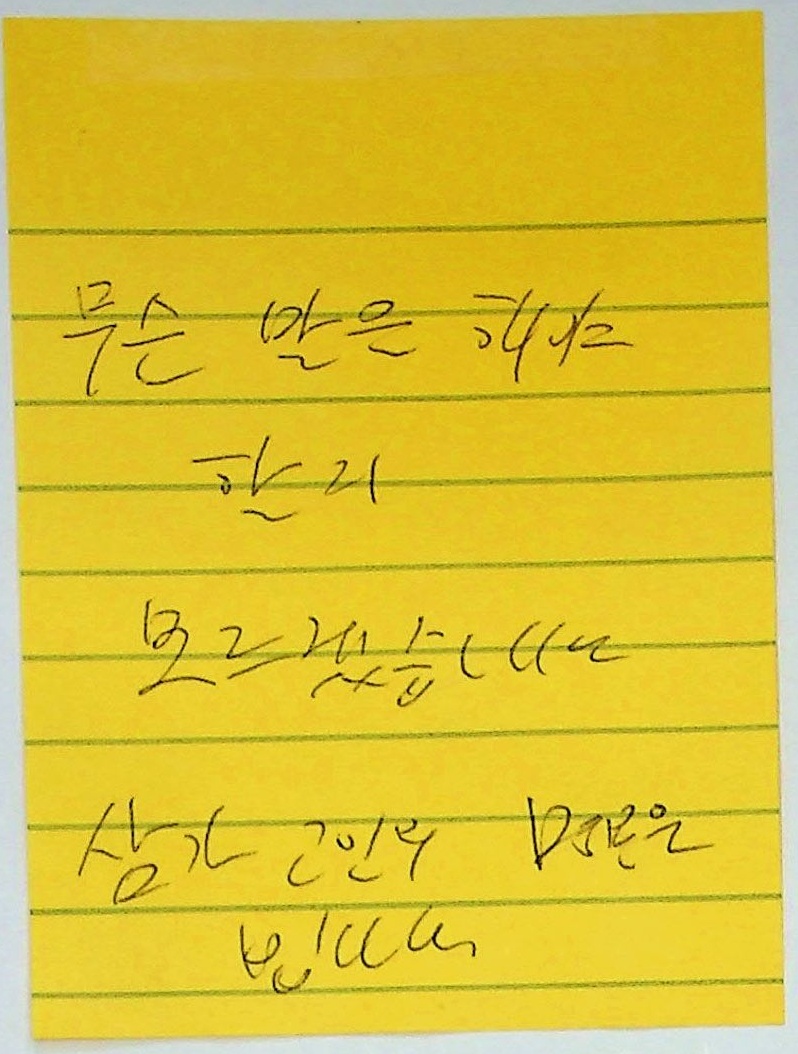 무슨 말은 해야
할 지
모르겠습니다
삼가 고인의 명복을
빕니다